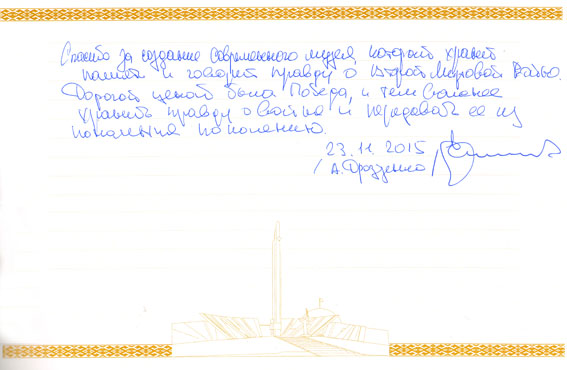 Спасибо за создание современного музея, который хранит
память и говорит правду о Второй Мировой Войне.
Дорогой ценой была Победа, и тем сильнее
хранить правду о войне и передавать ее из
поколения поколению.
23.11.2015
/А.Дрозденко/